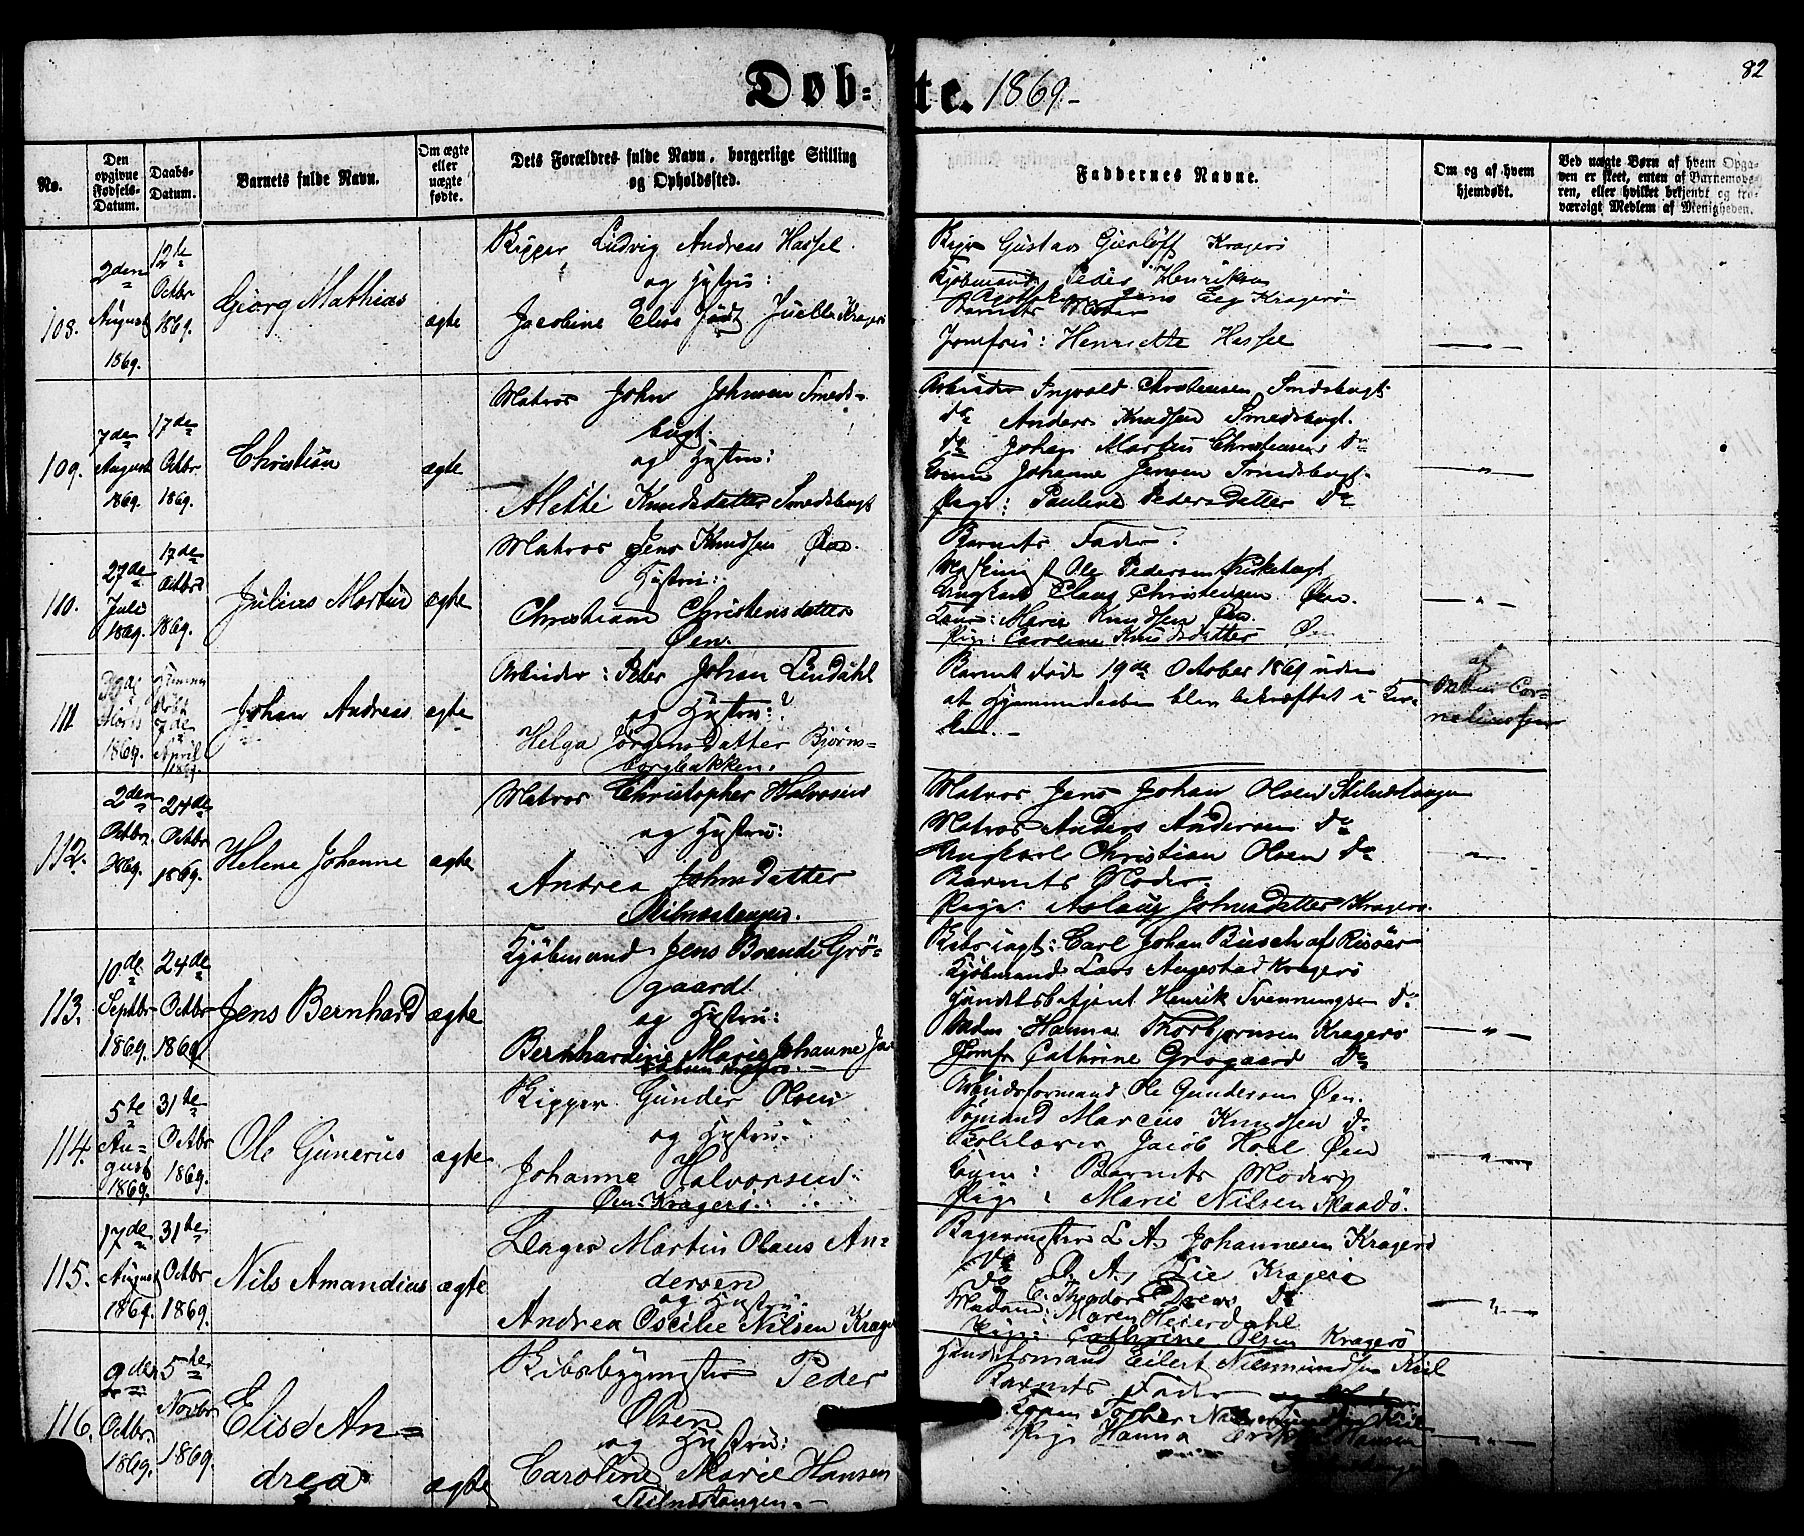 82
Døb-te. 1869.-
No.
Den opgivne Fødsels-Datum.
Daabs-Datum.
Barnets fulde Navn.
Om ægte eller uægte fødte.
Dets Forældres fulde Navn, borgerlige Stilling og Opholdssted.
Faddernes Navne.
Om og af hvem hjemdøbt.
Ved uægte Børn af hvem Opga-
ven er skeet, enten af Barnemode-
ren, eller hvilket bekjendt og tro-
værdigt Medlem af Menigheden.
108.
2den August 1869.
12te Octbr 1869.
Georg Mathias
ægte
Skipper Ludvig Andreas Hassel
og Hustru:
Jacobine Elise født Juell Kragerö
Gustav Gierløff Kragerö
Kjöbmand Peder Henriksen
Apotheker Jens Eeg Kragerö
Barnets Moder
Jomfru: Henriette Hassel
109.
7de August 1869.
17de Octbr 1869.
Christian
ægte
Matros John Johnsen Smeds-
bugt.
og Hustru:
Alette Knudsdatter Smedsbugt
Arbeider Ingvald Christensen Smedsbugt
do Anders Knudsen Smedsbugt.
do Johan Martin Christensen do
Kone Johanne Jensen Smedsbugt.
Pige: Pauline Pedersdatter do
110.
27de Juli 1869.
17de Octbr 1869.
Julius Martin
ægte
Matros Jens Knudsen Øen.
Hustru:
Christiane Christensdatter
Øen.
Barnets Fader.
Ole Pedersen Kirkebugt
Ungkarl Claus Christensen Øen.
Kone: Marie Knudsen Øen.
Pige: Caroline Knudsdatter Øen
111
Marts 1869.
Hjemme döbt 7de April 1869.
Johan Andreas
ægte
Arbeider: Peter Johan Lindahl
og Hustru:
Helga Jörgensdatter Bjørns-
borgbakken.
Barnet døde 19de October 1869 uden
at Hjemmedaaben blev bekræftet i Kir-
ken.-
af
Cor-
neliussen
112.
2den Octbr 1869.
24de Octbr 1869.
Helene Johanne
ægte
Matros Christopher Halvorsen
og Hustru:
Andrea Johnsdatter
Stilnestangen.
Matros Jens Johan Olsen Stilnestangen
Matros Anders Andersen do
Ungkarl Christian Olsen do
Barnets Moder.
Pige. Aslaug Johnsdatter Kragerö.
113.
10de Septbr 1869.
24de Octbr 1869.
Jens Bernhard
ægte
Kjöbmand Jens Brandt Grö-
gaard
og Hustru:
Bernhardine Marie Johanne Ja-
cobsen Kragerö.-
Carl Johan Busch af Risöer
Kjöbmand Lars Angestad Kragerö
Handelsbetjent Henrik Svenningsen do
Madm. Hanna Thorbjørnsen Kragerö
Jomfr Cathrine Grøgaard do
114.
5te August 1869.
31te Octbr 1869.
Ole Gunerius
ægte
Skipper Gunder Olsen
og Hustru:
Johanne Halvorsen
Øen Kragerö.
Arbeidsformand Ole Gundersen Øen.
Sømand Marcus Knudsen do
Jacob Holl Øen
Kone: Barnets Moder
Pige: Marie Nilsen Skaadö.
115.
17de August 1869.
31te Octbr 1869.
Nils Amandius
ægte
Bager Martin Olaus An-
dersen
og Hustru:
Andrea Oscilie Nilsen Kragerö
Bagermester L. A. Johannesen Kragerö
do D. A. Lie Kragerö
do C. Theodor Drews do
Madam: Maren Heierdahl
Pige: Cathrine Olsen Kragerö
116.
9de Octbr. 1869.
5te Novbr 1869.
Elise An-
drea
ægte
Skibsbygmester Peder
Olsen
og Hustru:
Caroline Marie Hansen
Stilnestangen.-
Handelsmand Eilert Kiil
Barnets Fader
Pige Hanna Hansen